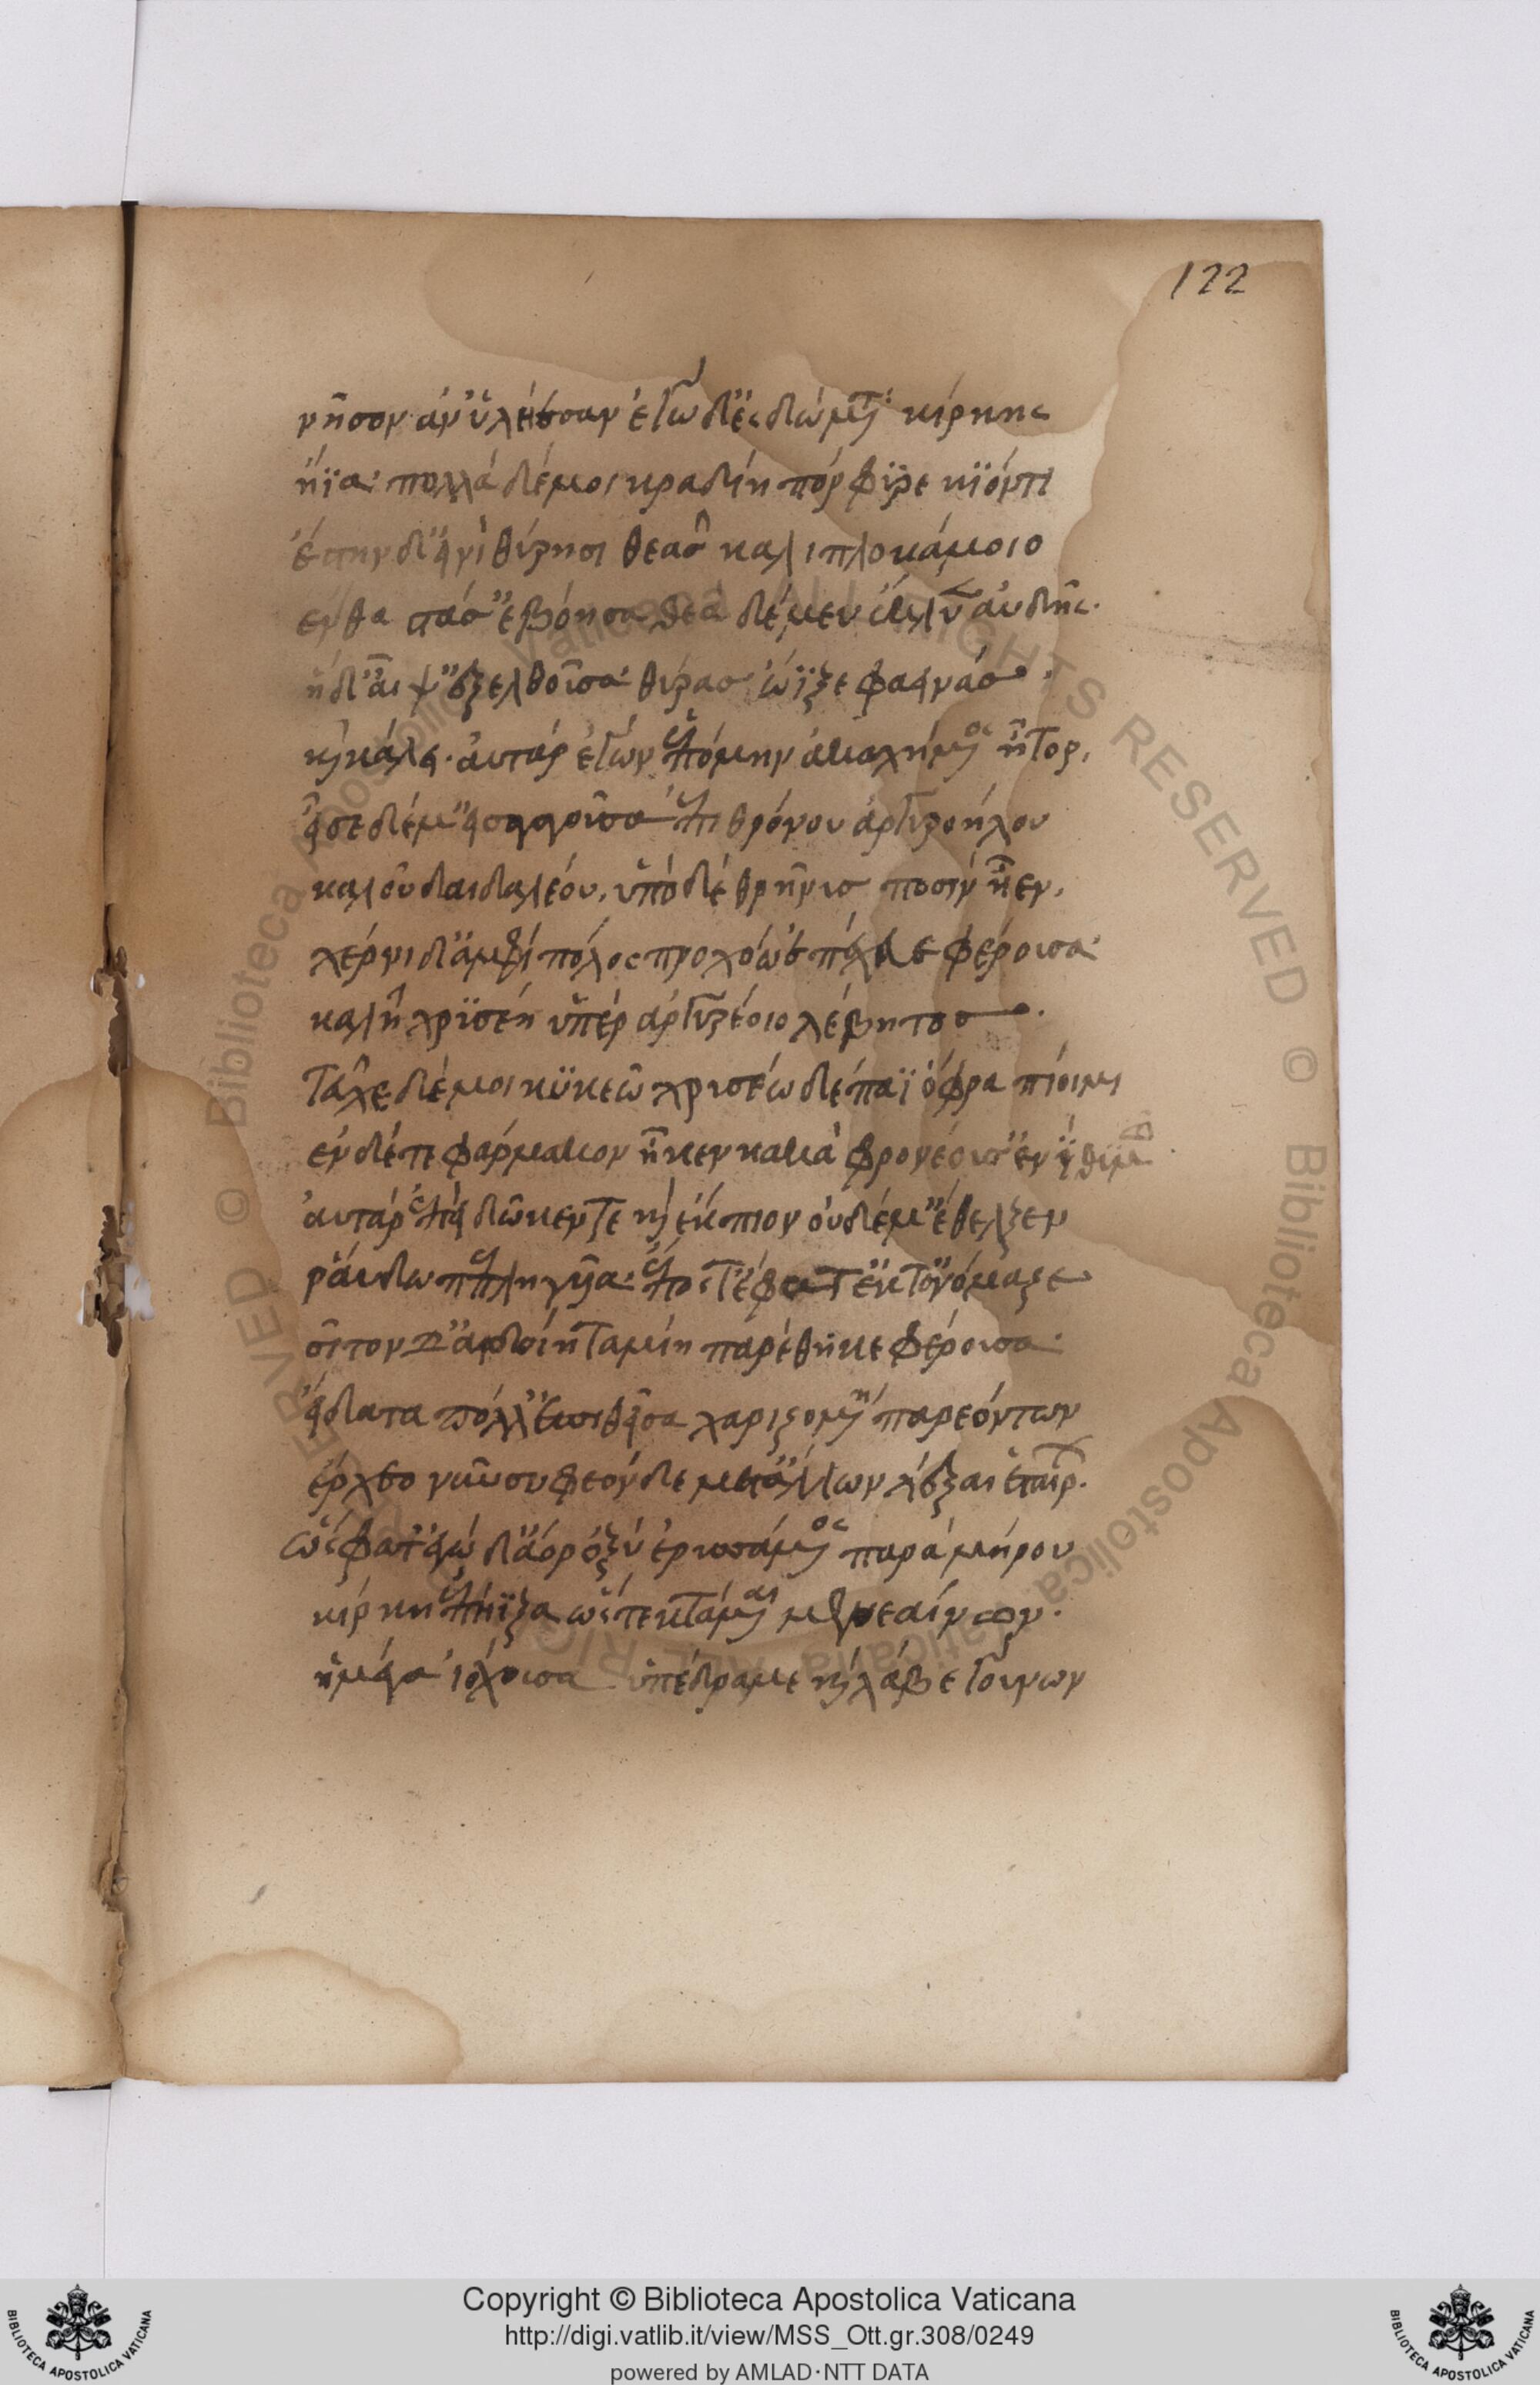 122
νῆσον ἀν ὑλήεσσαν ἐγὼ δ' ἐς δώματα κίρκης
ἤϊα· πολλὰ δέ μοι κραδίη πόρφϋρε κϊόντι
ἔστην δ' εἰνὶ θύρῃσι θεᾶσ καλιπλοκάμοιο
ἔνθα στὰσ ἐβόησα θεὰ δέ μευ ἔκλυεν αὐδῆς.
ἡ δ' αἶψ' ἐξελθοῦσα θύρασ ὤϊξε φαεινάσ.
καὶ κάλει. αὐτὰρ ἐγὼν ἑπόμην ἀκαχήμενος ἦτορ,
εἷσε δέ μ' εἰσαγαγοῦσα ἐπὶ θρόνου ἀργυροήλου
καλοῦ δαιδαλέου, ὑπὸ δὲ θρῆνυσ ποσὶν ἦεν,
χέρνιβα δ' ἀμφίπολος προχόω ἐπέχευε φέρουσα
καλῆ χρϋσείη ὑπὲρ ἀργυρέοιο λέβητοσ.
τεῦχε δέ μοι κϋκεῶ χρυσέω δέπαϊ ὄφρα πίοιμι
ἐν δέ τε φάρμακον ἧκεν κακὰ φρονέουσ' ἐνὶ θϋμῶ
αὐτὰρ ἐπεὶ δῶκεν τε καὶ ἔκπιον οὐδέ μ' ἔθελξεν
ῥάβδω πεπληγυῖα ἔπος τ' ἔφατ' ἔκ τ' ὀνόμαζε
σῖτον δ' αἰδοίη ταμίη παρέθηκε φέρουσα.
εἴδατα πόλλ' ἐπιθεῖσα χαριζομένη παρεόντων
ἔρχεο νῦν συφεόνδε μετ' ἄλλων λέξαι ἑταίρων.
ὣς φατ' ἐγὼ δ' ἄορ ὀξὺ ἐρυσάμενος παρὰ μηροῦ
κίρκη ἐπήϊξα ὥς τε κτάμεναι μενεαίνων.
ἡ μέγα ἰάχουσα ὑπέδραμε καὶ λάβε γούνων
Copyright © Biblioteca Apostolica Vaticana
http://digi.vatlib.it/view/MSS_Ott.gr.308/0249
powered by AMLAD·NTT DATA